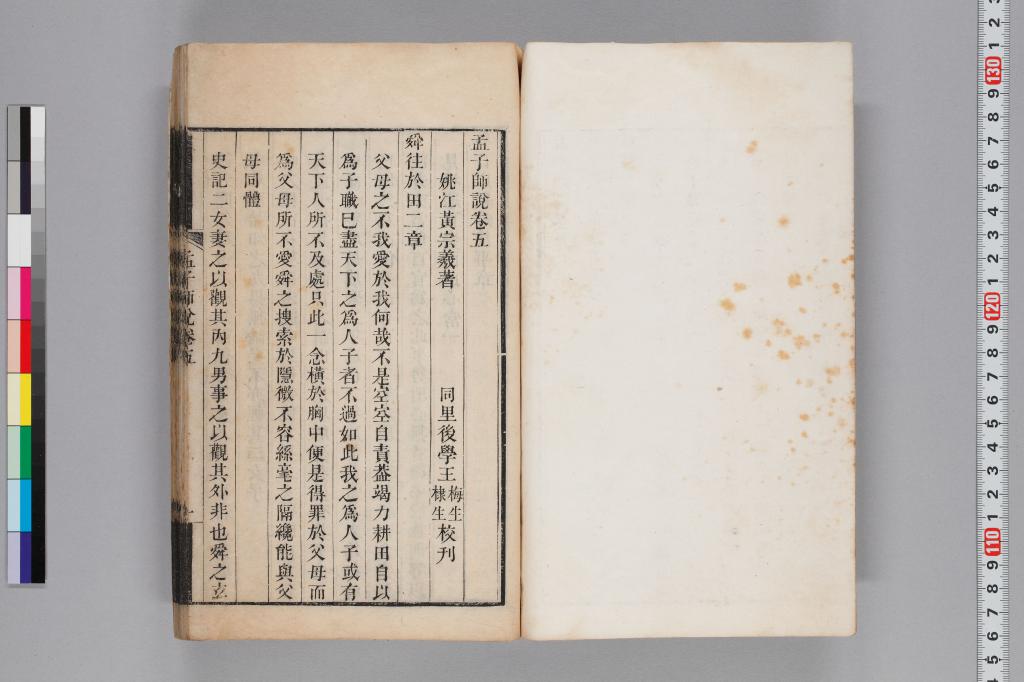 孟子師說卷五
姚江黃宗羲著 同里後學王梅生棣生校刊
舜往於田二章
父母之不我愛於我何哉不是空空自責葢竭力耕田自以
爲子職已盡天下之爲人子者不過如此我之爲人子或有
天下人所不及處只此一念橫於胸中便是得罪於父母而
爲父母所不愛舜之搜索於隱微不容絲毫之隔纔能與父
母同體
史記二女妻之以觀其內九男事之以觀其外非也舜之玄
孟子師說卷五
一
2
1
130
9
8
7
6
5
4
3
2
1
120
9
8
7
6
5
4
3
2
1
110
9
8
7
6
5